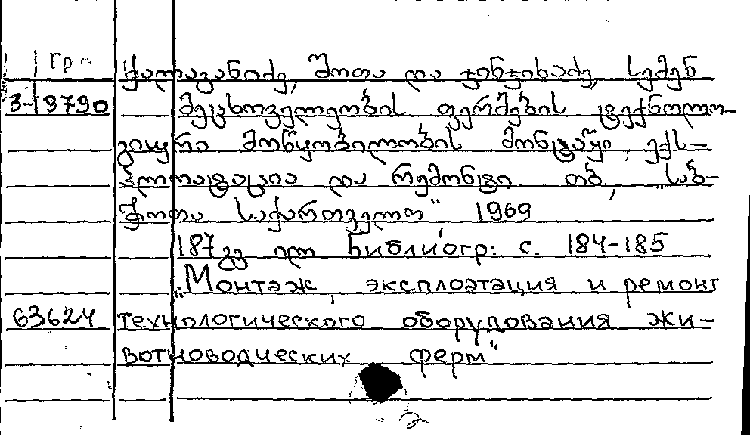 Гр.
ქალაგანიძე, შოთა და ჯინჯიხაძე, სემენ
3-19790 მეცხოველეობის ფერმების ტექნოლო-
გიური მოწყობილობის მონტაჟი, ექს-
პლოატაცია და რემონტი. თბ., „საბ-
ჭოთა საქართველო“, 1969
187 გვ. ილ. Библиогр: с. 184-185
„Монтаж, эксплоатация и ремонт
63624 технологического оборудования жи-
вотноводческих ферм“